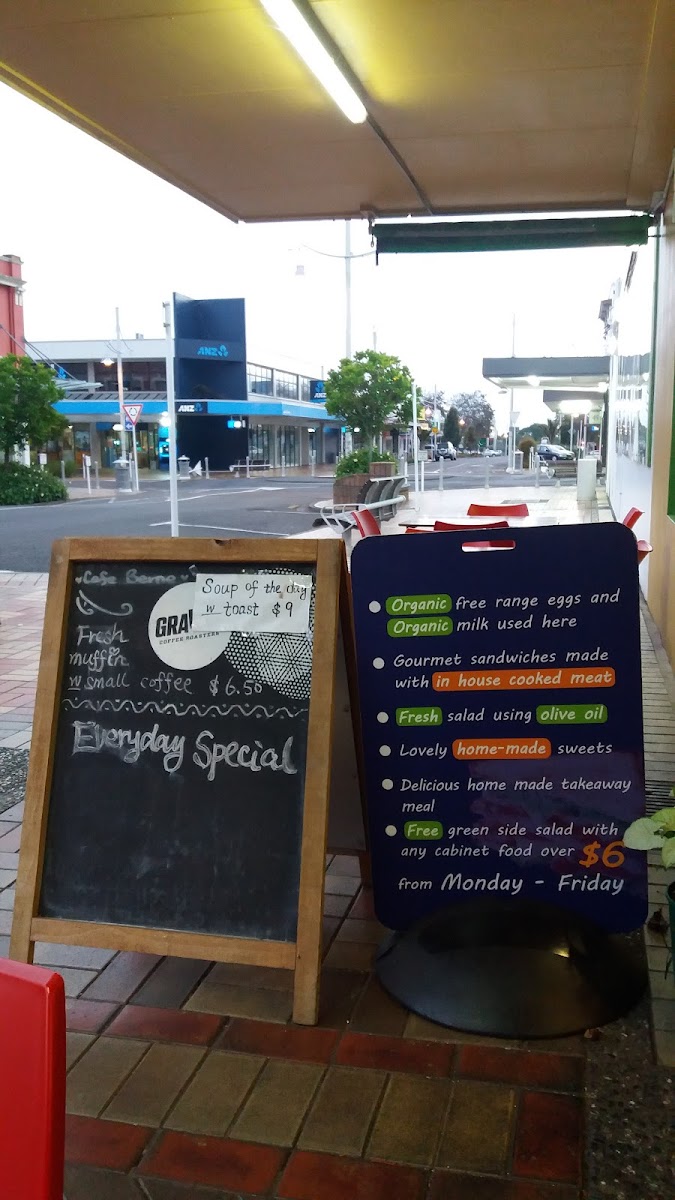 ANZ
ANZ
ANZ
Cafe Bemo
GRA
COFFEE ROASTERS
Soup of the day
w toast $9
Fresh
muffin
w small coffee $6.50
Everyday Special
Organic free range eggs and
Organic milk used here
Gourmet sandwiches made
with in house cooked meat
Fresh salad using olive oil
Lovely home-made sweets
Delicious home made takeaway
meal
Free green side salad with
any cabinet food over $6
from Monday - Friday